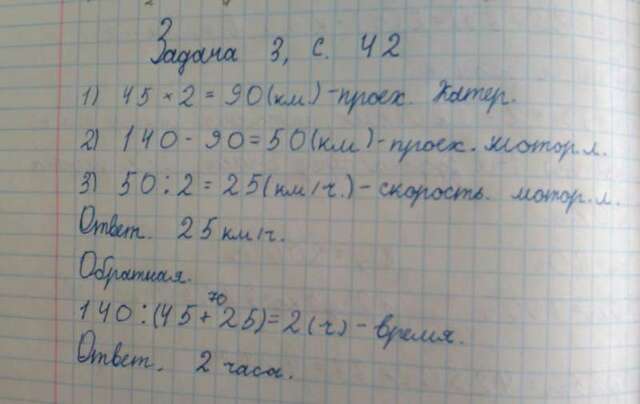 Задача 3, с. 42
1) 45 × 2 = 90 (км) - проех. Катер.
2) 140 - 90 = 50 (км) - проех. мотор.л.
3) 50 : 2 = 25 (км/ч.) - скорость. мотор.л.
Ответ. 25 км/ч.
Обратная.
70
140 : (45 + 25) = 2 (ч) - время.
Ответ. 2 часа.